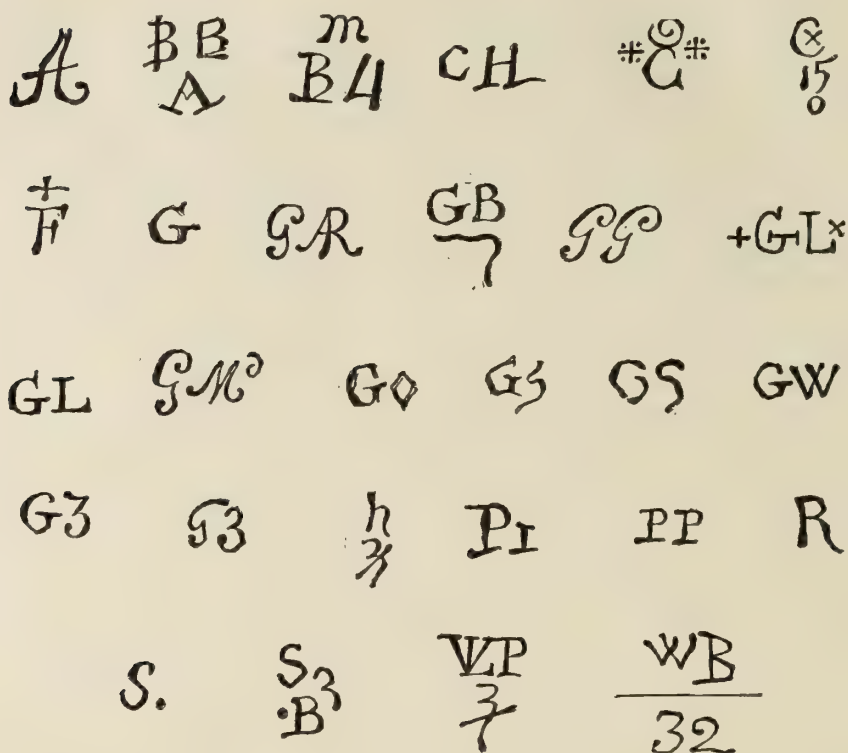 A
B B
A
m
B4
CH
*C*
C×
15
0
+
F
G
GR
GB
7
GG
+GL×
GL
GM
G◊
GS
GS
GW
G3
G3
h
PI
PP
R
S.
S3
·B
VLP
3
WB
32